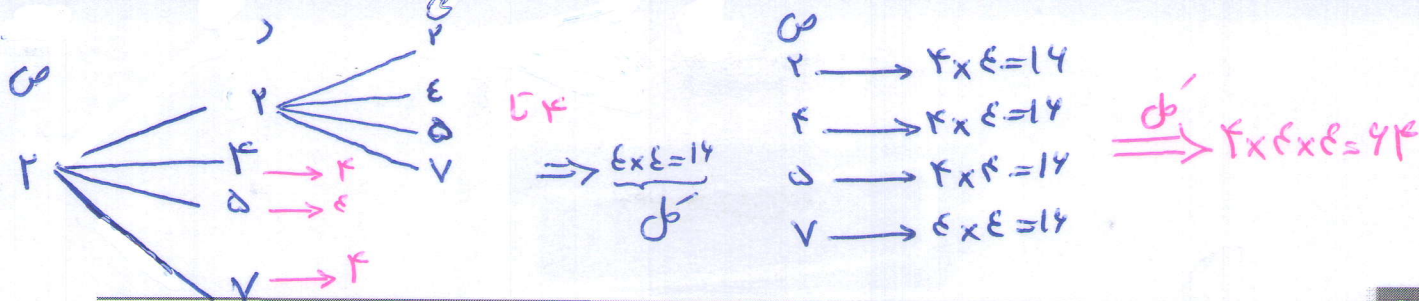 ص د ی
۲ ۲ ۲
۴
۵
۷
۴ تا
۴ → ۴
۵ → ۴
۷ → ۴
⇒ ۴×۴=۱۶
کل
ص
۲ → ۴×۴=۱۶
۴ → ۴×۴=۱۶
۵ → ۴×۴=۱۶
۷ → ۴×۴=۱۶
کل
⇒ ۴×۴×۴=۶۴